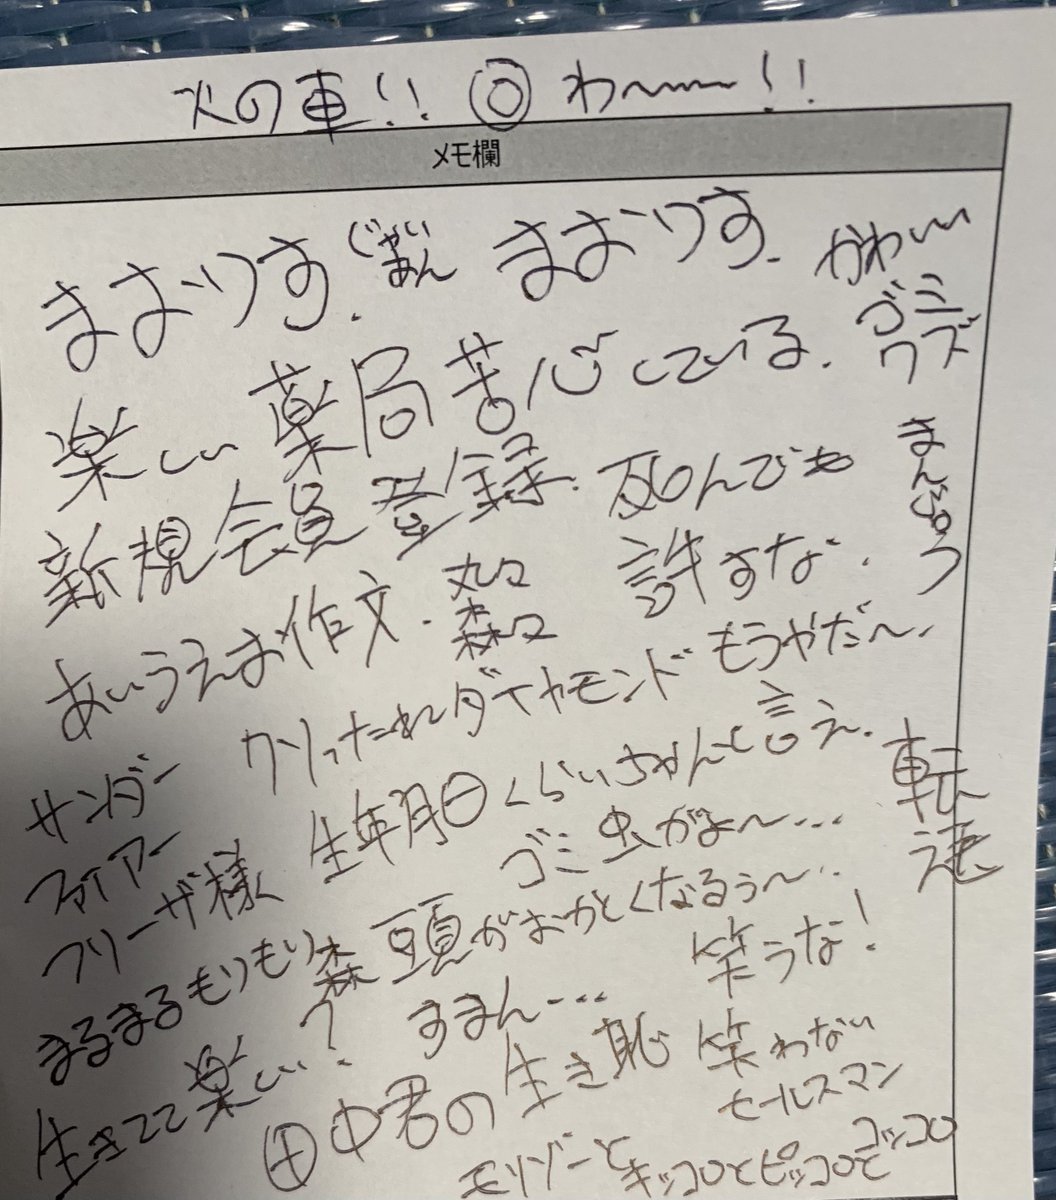 火の車!! ◎ わ〜〜!!
メモ欄
まおりす. じゃいあん まおりす. かわいい
楽しい 薬局 苦心している. ゴミクズ
新規会員登録. 死んでも まんじゅう
あいうえお作文. 丸々 森々 許すな.
サンダー クソったれダイヤモンド もうやだ〜.
ファイアー 生年月日くらいちゃんと言え. 転
フリーザ様 ゴミ虫がよ〜...
まるまるもりもり森 頭がおかしくなるぅ〜...
生きてて楽しい? すまん... 笑うな!
田中君の生き恥 笑わない
セールスマン
モリゾーとキッコロとピッコロとコッコロ